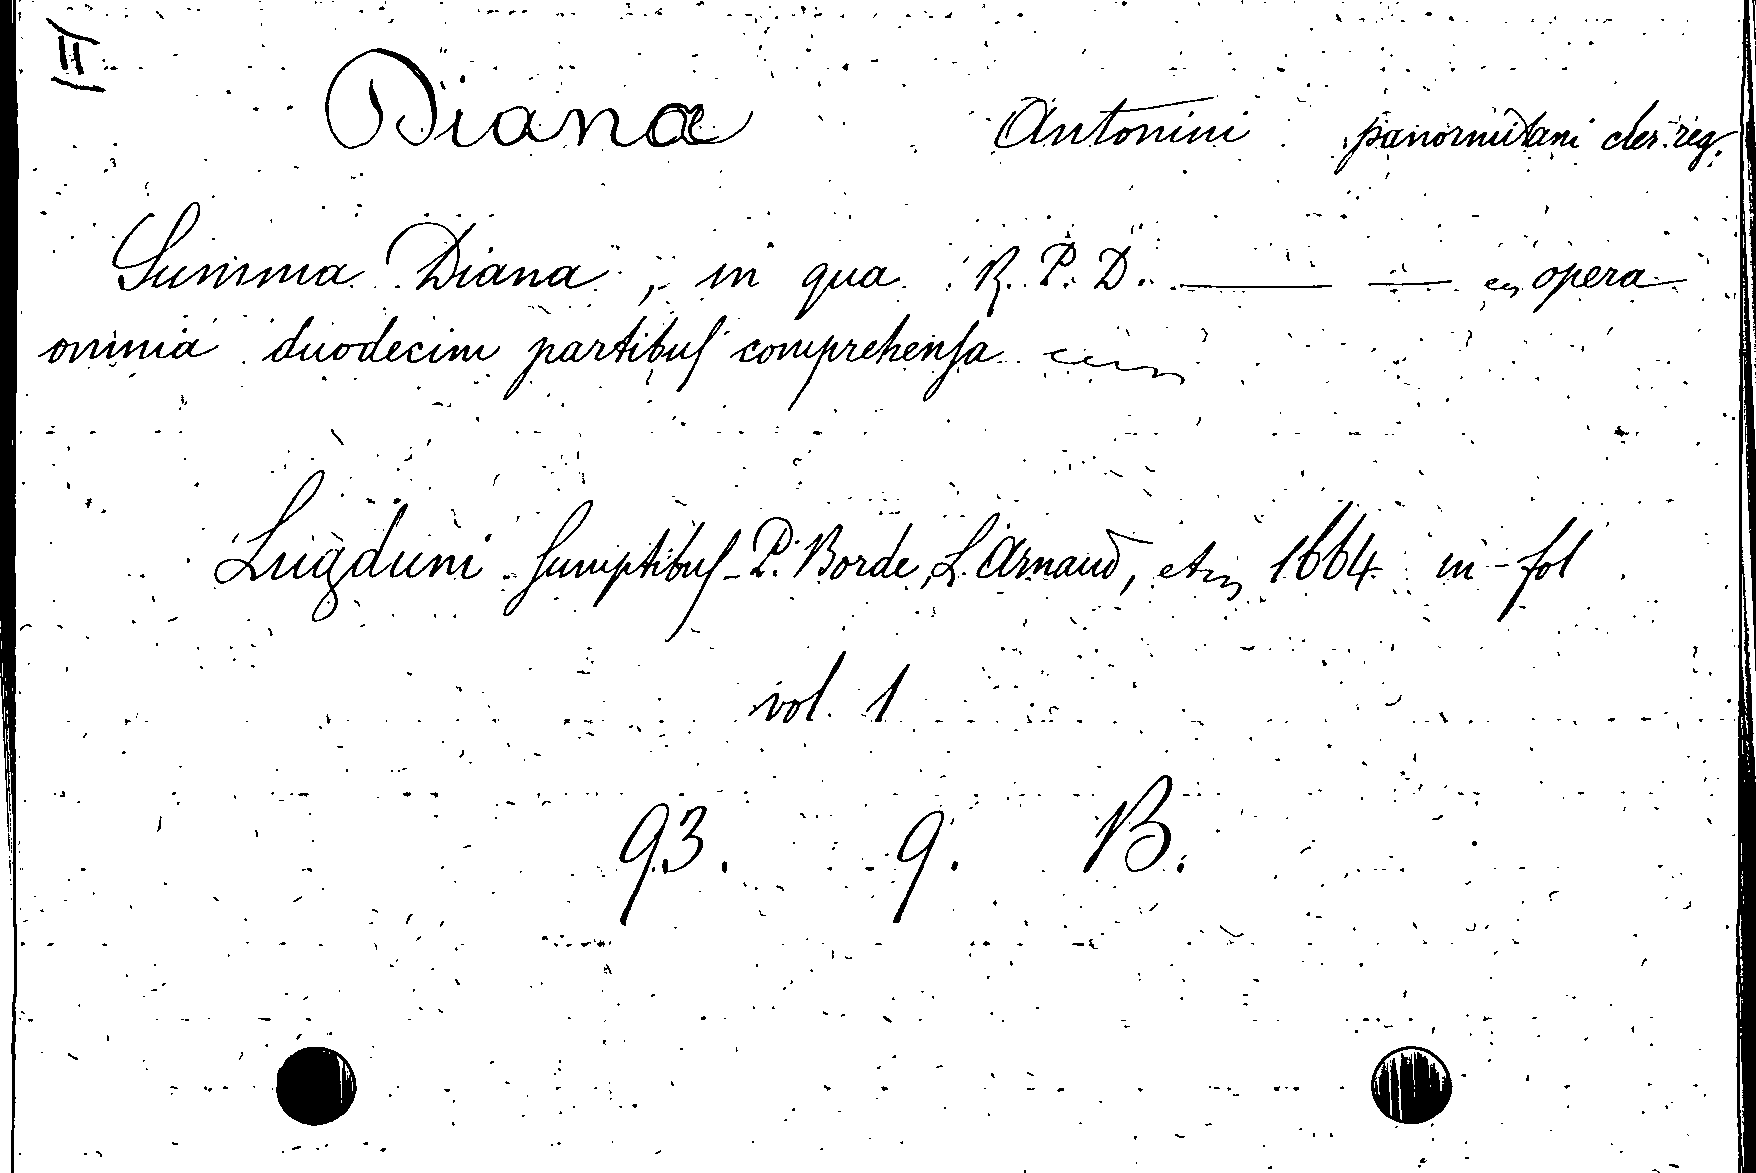 II
Dianæ Antonini panormitani cler. reg.
Summa Diana, in qua R. P. D. ——— — opera
omnia duodecim partibus comprehensa
Lugduni sumptibus P. Borde, L. Arnaud, et 1664 in-fol
vol. 1
93. 9. B.